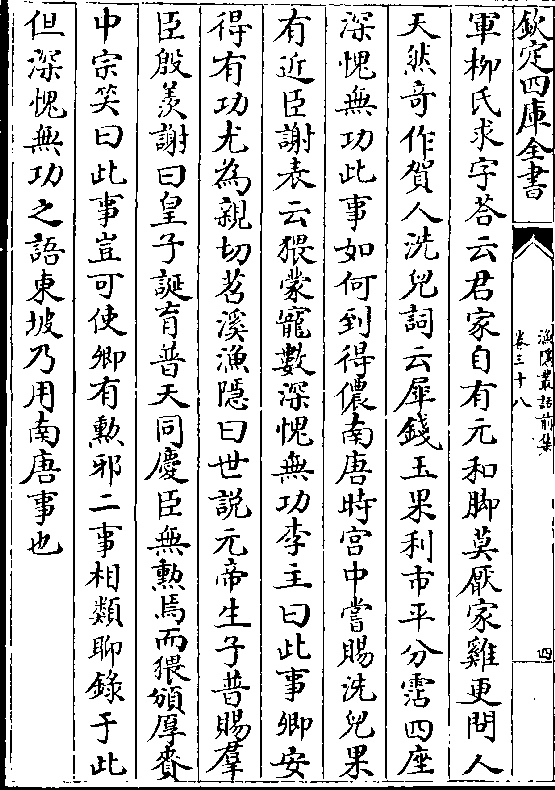 欽定四庫全書
漁隱叢話前集
卷三十八
四
軍柳氏求字荅云君家自有元和脚莫厭家雞更問人
天然奇作賀人洗兒詞云犀錢玉果利市平分霑四座
深愧無功此事如何到得儂南唐時宫中嘗賜洗兒果
有近臣謝表云猥蒙寵數深愧無功李主曰此事卿安
得有功尤為親切苕溪漁隱曰世說元帝生子普賜羣
臣殷羨謝曰皇子誕育普天同慶臣無勲焉而猥頒厚賚
中宗笑曰此事豈可使卿有勲邪二事相類聊錄于此
但深愧無功之語東坡乃用南唐事也